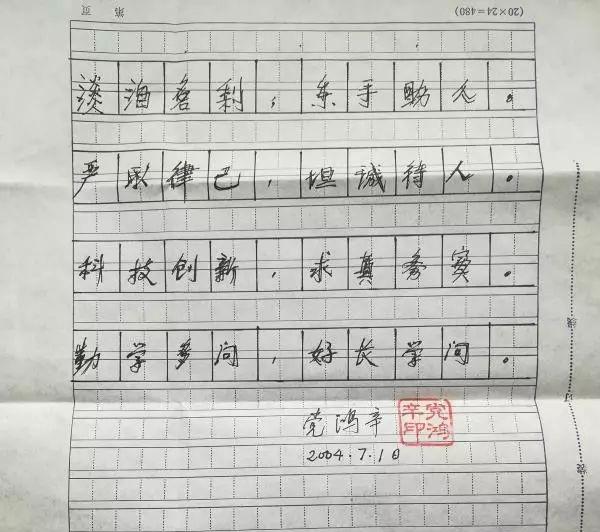 (20×24=480)
第 页
淡泊名利，乐于助人。
严以律己，坦诚待人。
科技创新，求真务实。
勤学多问，好长学问。
党鸿辛
党鸿辛印
2004.7.1日
装订线